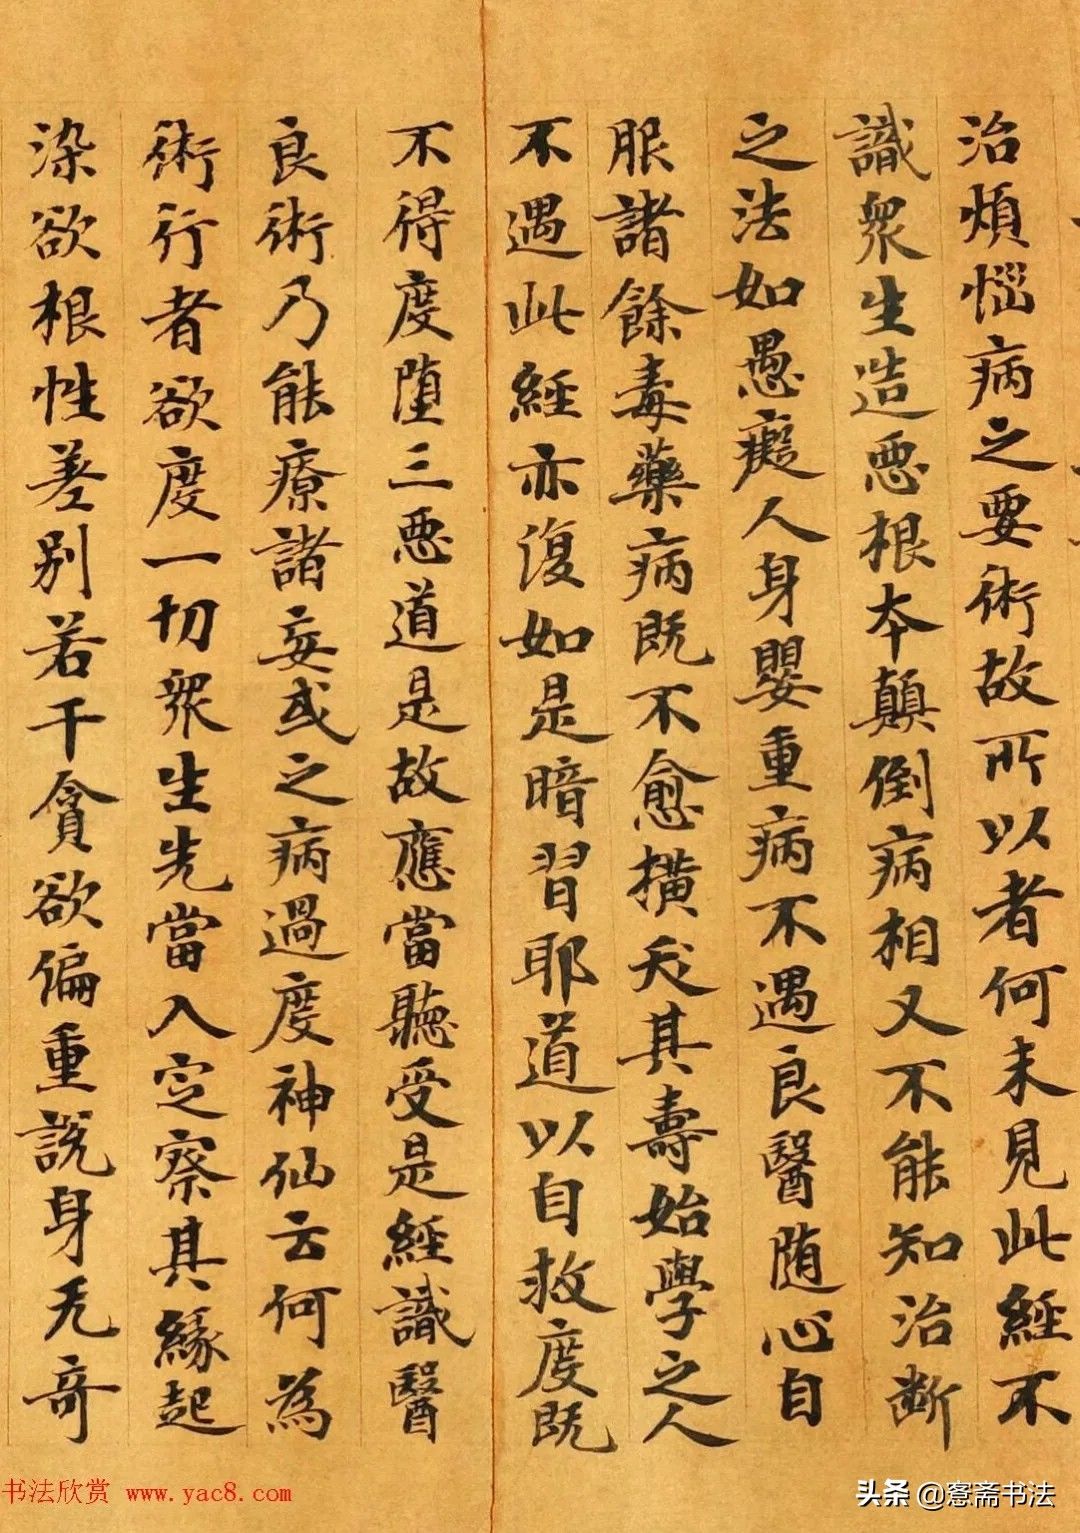 治煩惱病之要術故所以者何未見此經不
識衆生造惡根本顛倒病相又不能知治断
之法如愚癡人身嬰重病不遇良醫随心自
服諸餘毒藥病既不愈横夭其壽始學之人
不遇此經亦復如是暗習耶道以自救度既
不得度堕三惡道是故應當聽受是經識醫
良術乃能療諸妄或之病過度神仙云何為
術行者欲度一切衆生先當入定察其緣起
染欲根性差别若干貪欲偏重説身无奇
书法欣赏 www.yac8.com
头条 @窓斋书法